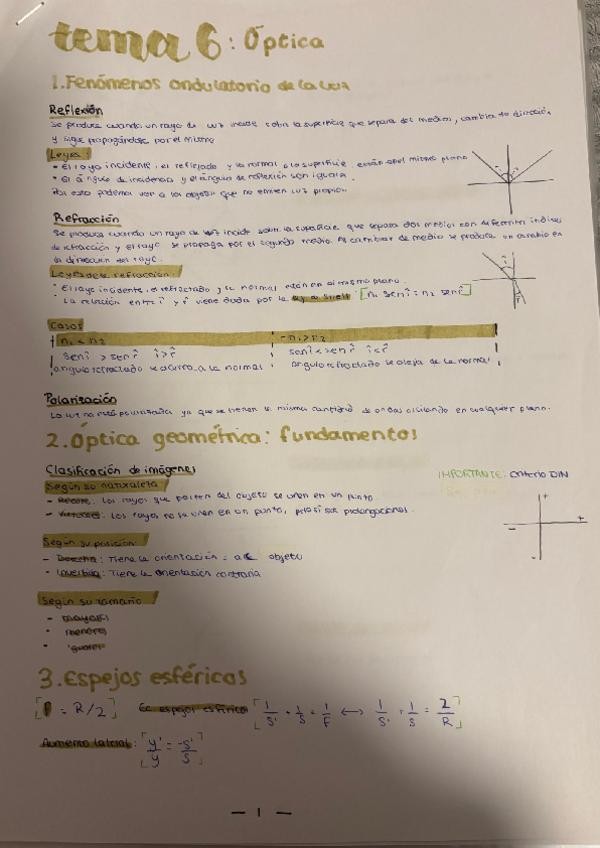 tema 6: Óptica
1. Fenómenos ondulatorio de la luz
Reflexión
Se produce cuando un rayo de luz incide sobre la superficie que separa dos medios, cambia de dirección
y sigue propagándose por el mismo
Leyes:
• El rayo incidente, el reflejado y la normal a la superficie están en el mismo plano
• El ángulo de incidencia y el ángulo de reflexión son iguales.
Por esto podemos ver a los objetos que no emiten luz propia.
Refracción
Se produce cuando un rayo de luz incide sobre la superficie que separa dos medios con diferentes índices
de refracción y el rayo se propaga por el segundo medio. Al cambiar de medio se produce un cambio en
la dirección del rayo.
Leyes de la refracción:
• El rayo incidente, el refractado y la normal están en el mismo plano.
• La relación entre î y r̂ viene dada por la ley de Snell [n₁ sen î = n₂ sen r̂]
Casos
n₁ < n₂
- n₁ > n₂
sen î > sen r̂ î > r̂
sen î < sen r̂ î < r̂
angulo refractado se acerca a la normal
angulo refractado se aleja de la normal
Polarización
La luz no está polarizada ya que se tienen la misma cantidad de ondas oscilando en cualquier plano.
2. Óptica geométrica: fundamentos
Clasificación de imágenes
IMPORTANTE: Criterio DIN
Según su naturaleza:
- Reales: Los rayos que parten del objeto se unen en un punto.
- Virtuales: Los rayos no se unen en un punto, pero si sus prolongaciones.
+
+
-
-
Según su posicion:
- Derecha: Tiene la orientación = al objeto
- Invertida: Tiene la orientación contraria
Según su tamaño
- mayores
- menores
- iguales
3. Espejos esféricos
[F = R/2] Ec espejos esféricos [1/s' + 1/s = 1/F ⟷ 1/s' + 1/s = 2/R]
Aumento lateral: [y'/y = -s'/s]
— 1 —